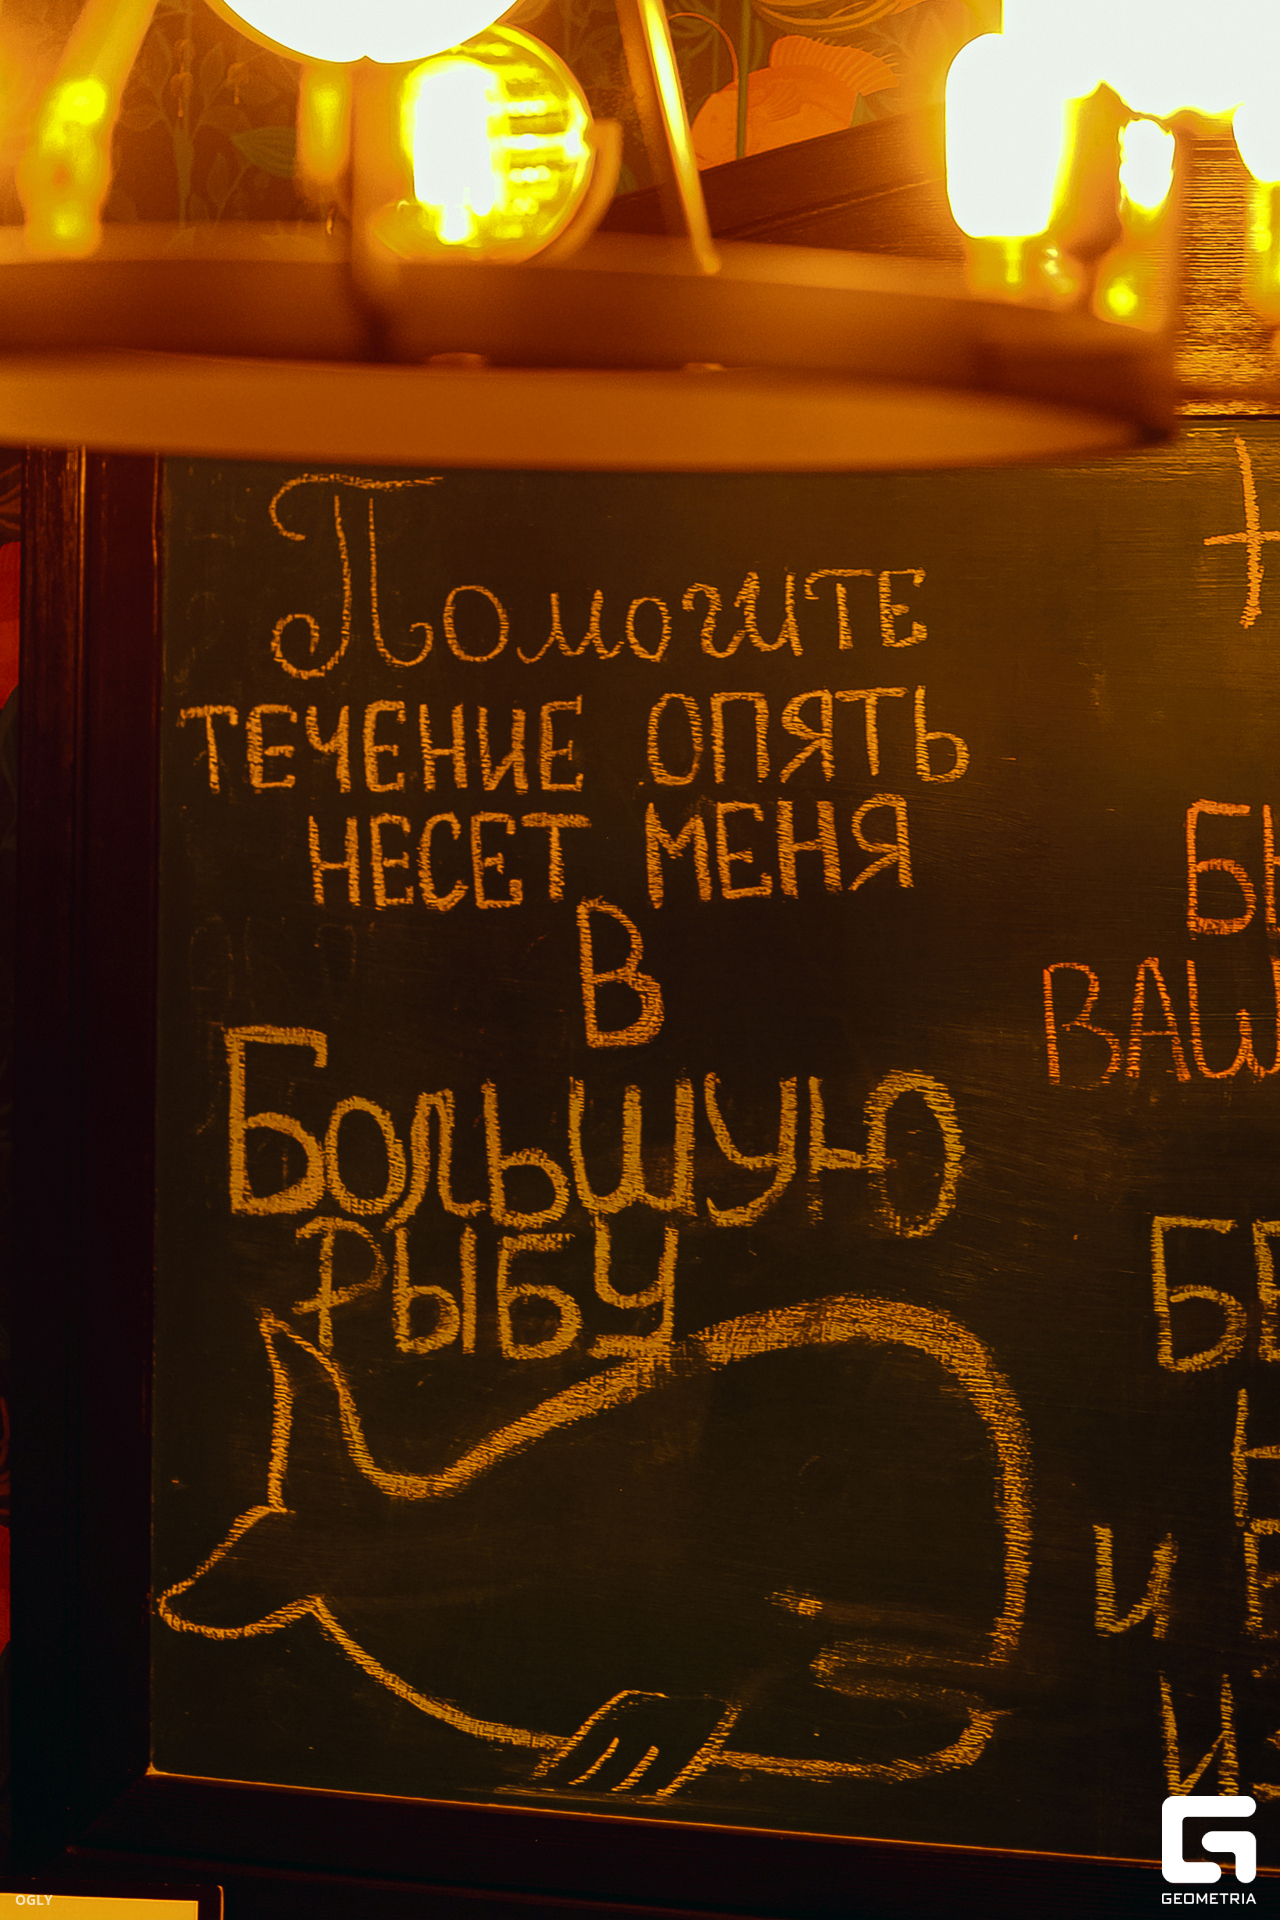 Помогите
ТЕЧЕНИЕ ОПЯТЬ
НЕСЕТ МЕНЯ
В
БОЛЬШУЮ
РЫБУ
И
OGLY
GEOMETRIA